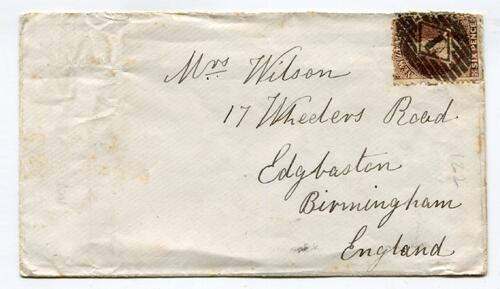 Mrs Wilson
17 Wheelers Road
Edgbaston
Birmingham
England
SIX PENCE